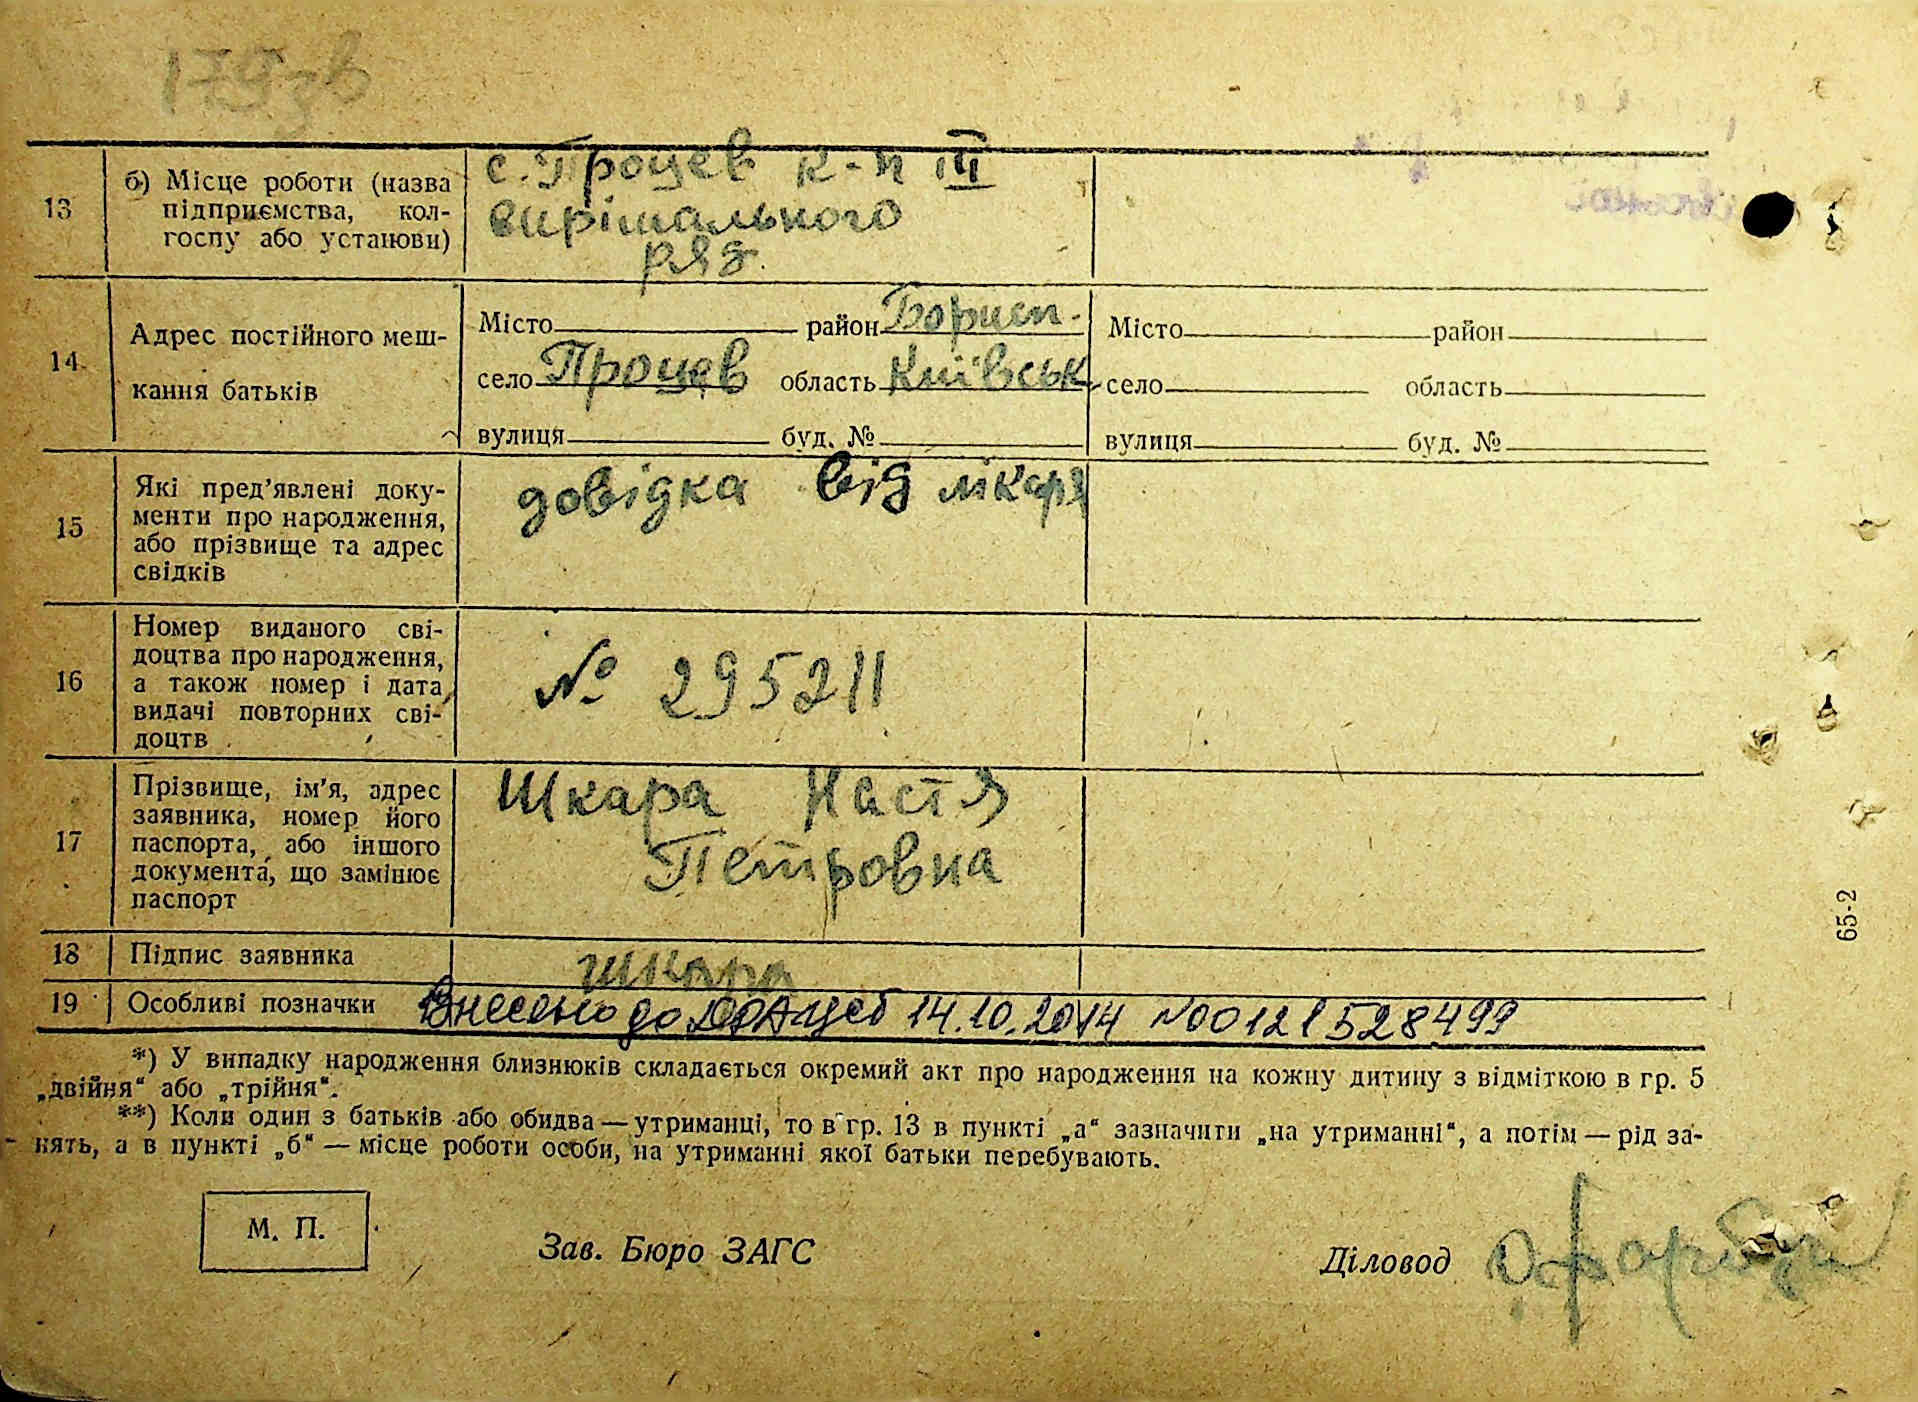 179 зв
13
б) Місце роботи (назва
підприємства, кол-
госпу або установи)
с. Процев к-п III
вирішального
ряд.
14
Адрес постійного меш-
кання батьків
Місто район Борисп.
село Процев область Київськ.
вулиця буд. №
Місто район
село область
вулиця буд. №
15
Які пред’явлені доку-
менти про народження,
або прізвище та адрес
свідків
довідка від лікаря
16
Номер виданого сві-
доцтва про народження,
а також номер і дата
видачі повторних сві-
доцтв
№ 295211
17
Прізвище, ім’я, адрес
заявника, номер його
паспорта, або іншого
документа, що замінює
паспорт
Шкара Настя
Петровна
18 Підпис заявника
Шкара
19 Особливі позначки Внесено до 14.10.2014 №00121528499
*) У випадку народження близнюків складається окремий акт про народження на кожну дитину з відміткою в гр. 5
„двійня“ або „трійня“.
**) Коли один з батьків або обидва — утриманці, то в гр. 13 в пункті „а“ зазначити „на утриманні“, а потім — рід за-
нять, а в пункті „б“ — місце роботи особи, на утриманні якої батьки перебувають.
65-2
М. П.
Зав. Бюро ЗАГС
Діловод